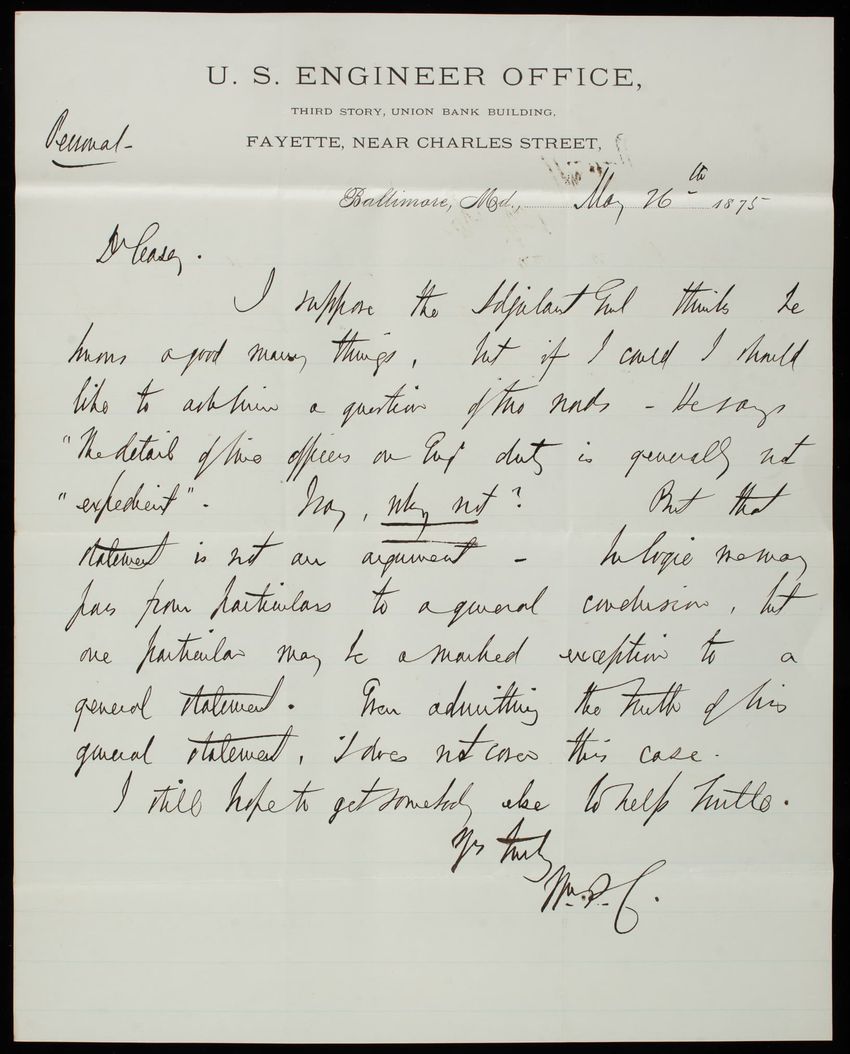 U. S. ENGINEER OFFICE,
THIRD STORY, UNION BANK BUILDING,
FAYETTE, NEAR CHARLES STREET,
Personal-
Baltimore, Md., May 26th 1875
Dr Casey.
I suppose the Adjutant Genl thinks he
knows a good many things, but if I could I should
like to ask him a question of two words - He says
"The detail of line officers on Eng' duty is generally not
"expedient" - Now, why not? But that
statement is not an argument - In logic we may
pass from particulars to a general conclusion, but
one particular may be a marked exception to a
general statement. Even admitting the truth of his
general statement, it does not cover this case.
I still hope to get somebody else to help
Yrs truly
Wm. P. C.